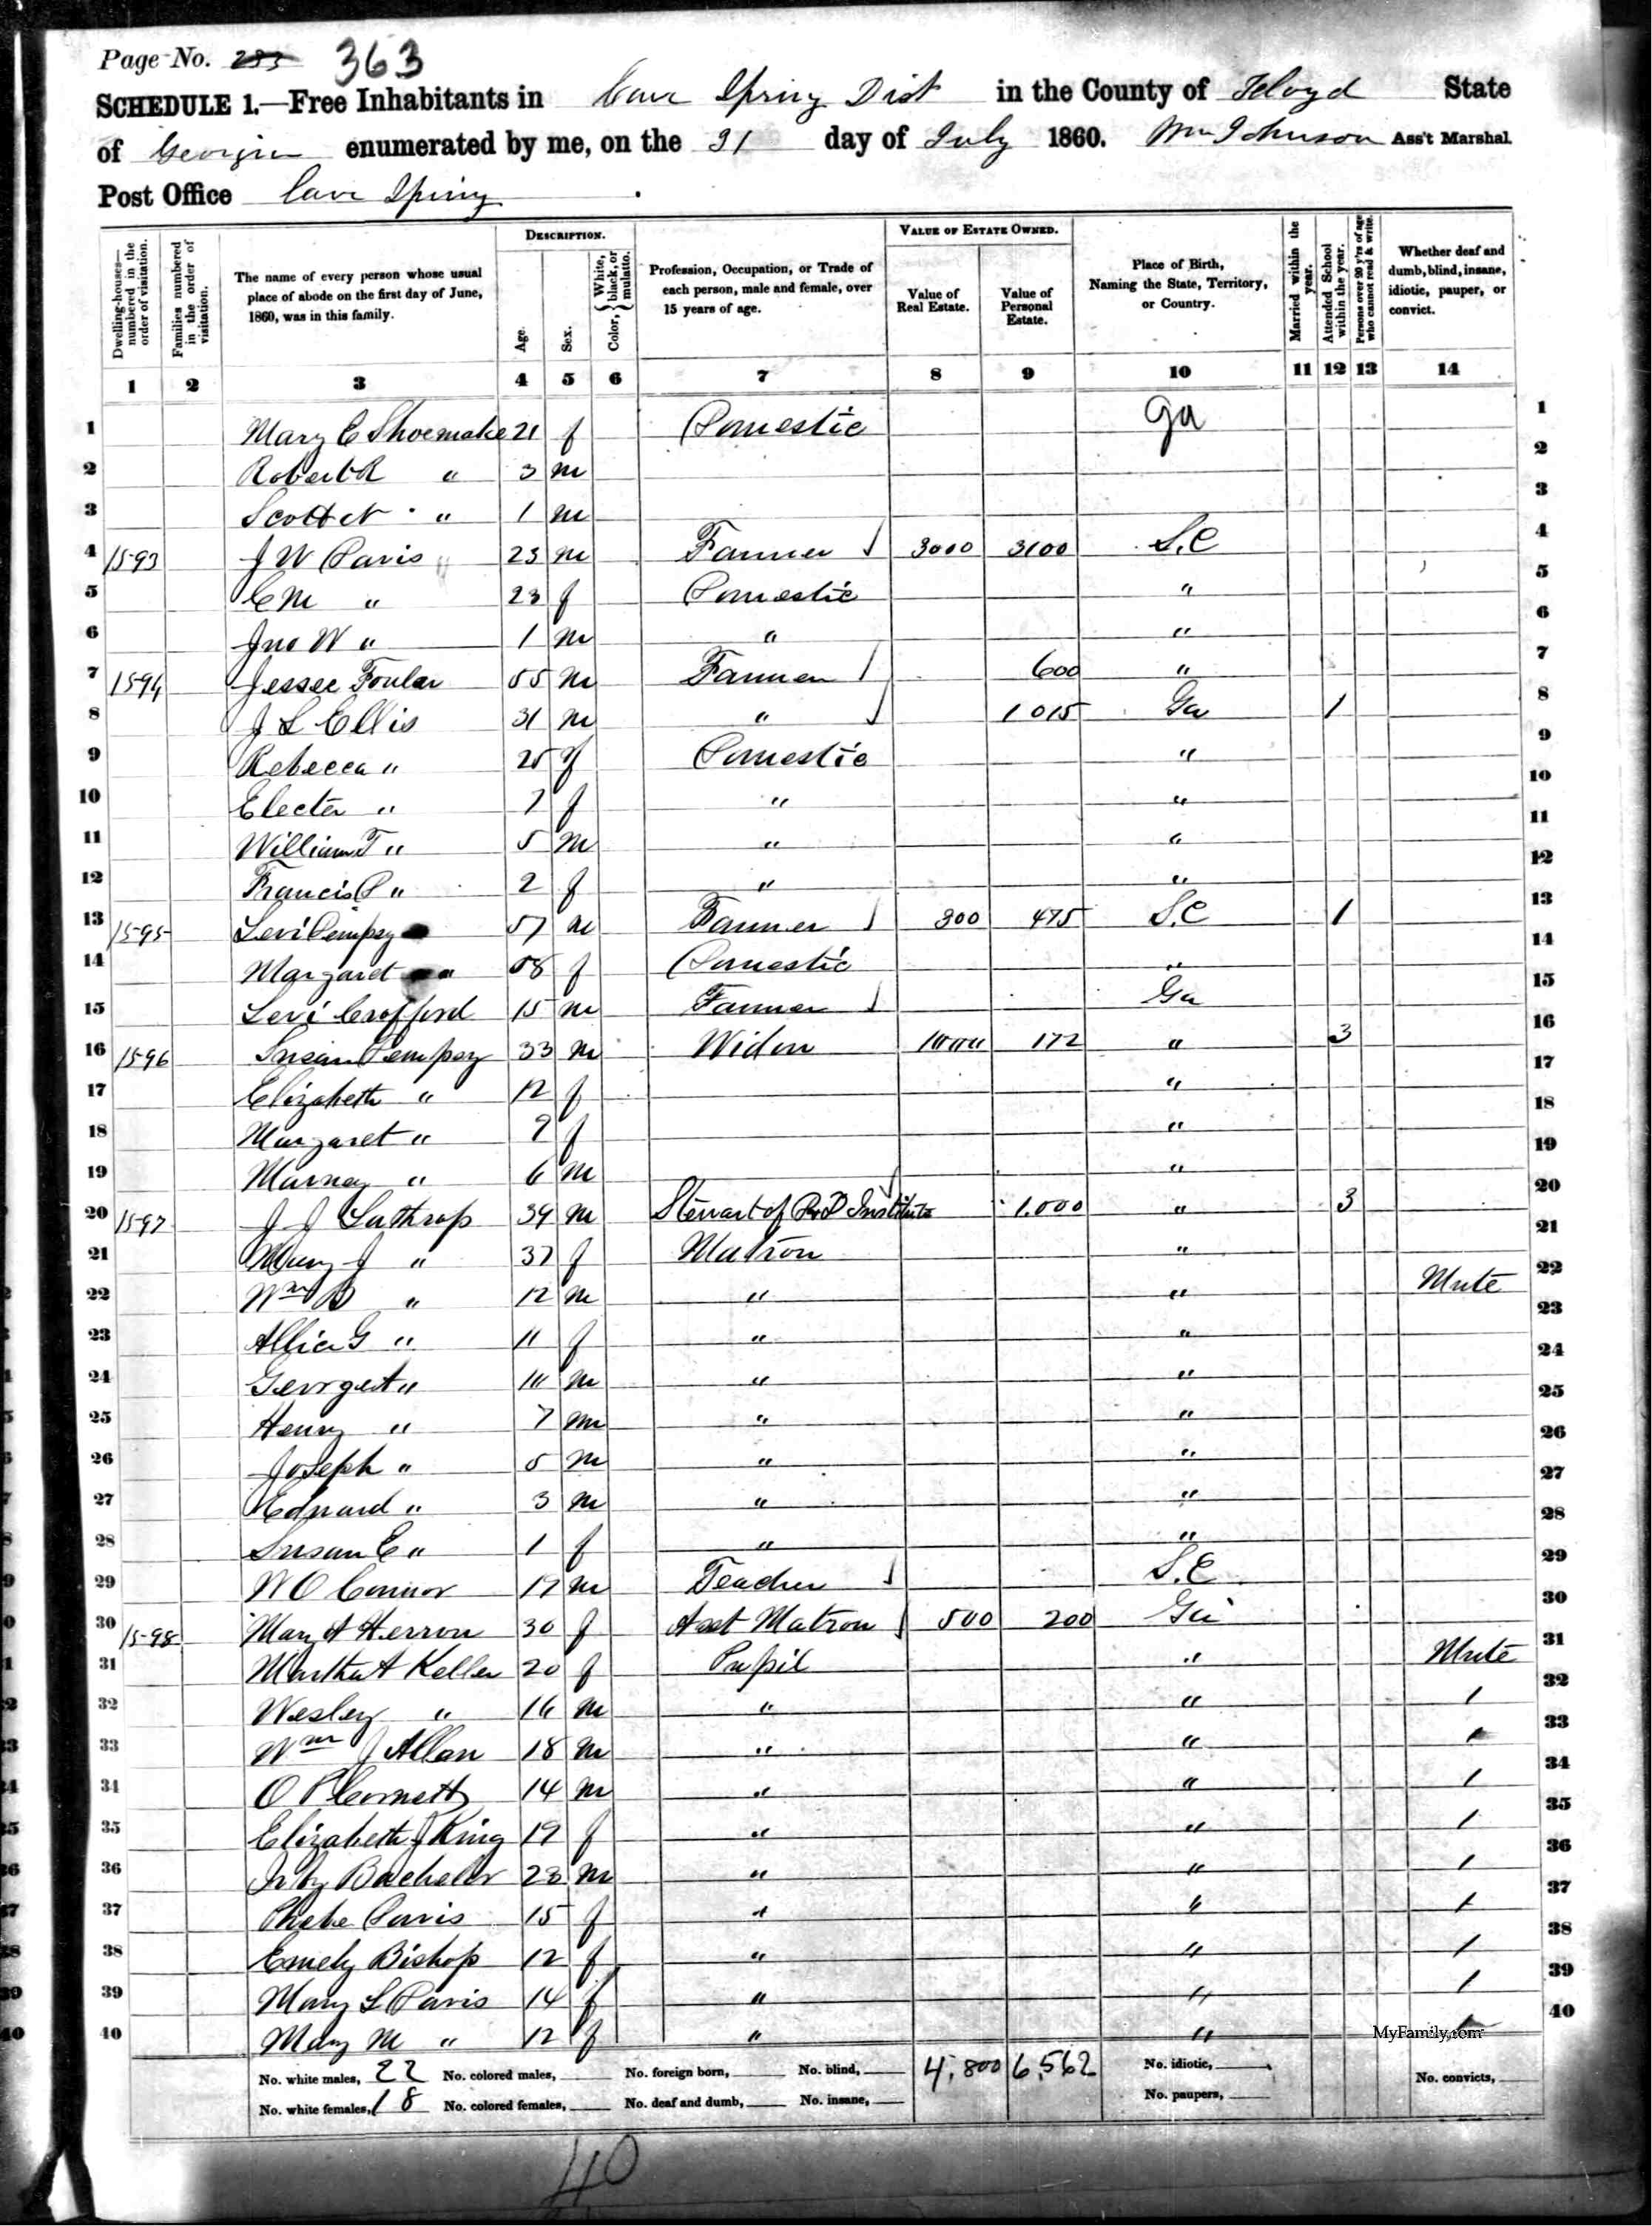 Page No. 283 363
SCHEDULE 1.—Free Inhabitants in Cave Spring Dist in the County of Floyd State
of Georgia enumerated by me, on the 31 day of July 1860. Wm Johnson Ass't Marshal.
Post Office Cave Spring
Dwelling-houses—numbered in the order of visitation.
Families numbered in the order of visitation.
The name of every person whose usual place of abode on the first day of June, 1860, was in this family.
DESCRIPTION.
Age.
Sex.
Color, { White, black, or mulatto.
Profession, Occupation, or Trade of each person, male and female, over 15 years of age.
VALUE OF ESTATE OWNED.
Value of Real Estate.
Value of Personal Estate.
Place of Birth, Naming the State, Territory, or Country.
Married within the year.
Attended School within the year.
Persons over 20 y'rs of age who cannot read & write.
Whether deaf and dumb, blind, insane, idiotic, pauper, or convict.
1 2 3 4 5 6 7 8 9 10 11 12 13 14
1 Mary C Shoemake 21 f Domestic Ga 1
2 Robert R " 3 m 2
3 Scott N " 1 m 3
4 1593 J W Davis 23 m Farmer 3000 3100 S.C 4
5 C M " 23 f Domestic " 5
6 Jno W " 1 m " " 6
7 1594 Jessee Foular 55 m Farmer 600 " 7
8 J L Ellis 31 m " 1015 Ga 1 8
9 Rebecca " 25 f Domestic " 9
10 Electer " 7 f " " 10
11 William T " 5 m " " 11
12 Francis P " 2 f " " 12
13 1595 Levi Dempsy 57 m Farmer 300 475 S.C 1 13
14 Margaret " 58 f Domestic " 14
15 Levi Crofford 15 m Farmer Ga 15
16 1596 Susan Dempsy 33 m Widow 1000 172 " 3 16
17 Elizabeth " 12 f " 17
18 Margaret " 9 f " 18
19 " 6 m " 19
20 1597 J J Lathrop 39 m Stewart of D & D Institute 1.000 " 3 20
21 Mary J " 37 f Matron " 21
22 Wm B " 12 m " " Mute 22
23 Allice G " 11 f " " 23
24 George A " 10 m " " 24
25 Henry " 7 m " " 25
26 Joseph " 5 m " " 26
27 Edward " 3 m " " 27
28 Susan E " 1 f " " 28
29 W O Connor 17 m Teacher S.C 29
30 1598 Mary A Herron 30 f Asst Matron 500 200 Ga 30
31 Martha A Keller 20 f Pupil " Mute 31
32 Wesley " 16 m " " 1 32
33 Wm J Allan 18 m " " 1 33
34 O P Cornett 14 m " " 1 34
35 Elizabeth J King 19 f " " 1 35
36 Irby Bacheler 23 m " " 1 36
37 Phebe Davis 15 f " " 1 37
38 Emely Bishop 12 f " " 1 38
39 Mary L Davis 14 f " " 1 39
40 Mary M " 12 f " " 1 40
MyFamily.com
No. white males, 22 No. colored males, No. foreign born, No. blind, 4,800 6,562 No. idiotic, No. convicts,
No. white females, 18 No. colored females, No. deaf and dumb, No. insane, No. paupers,
40